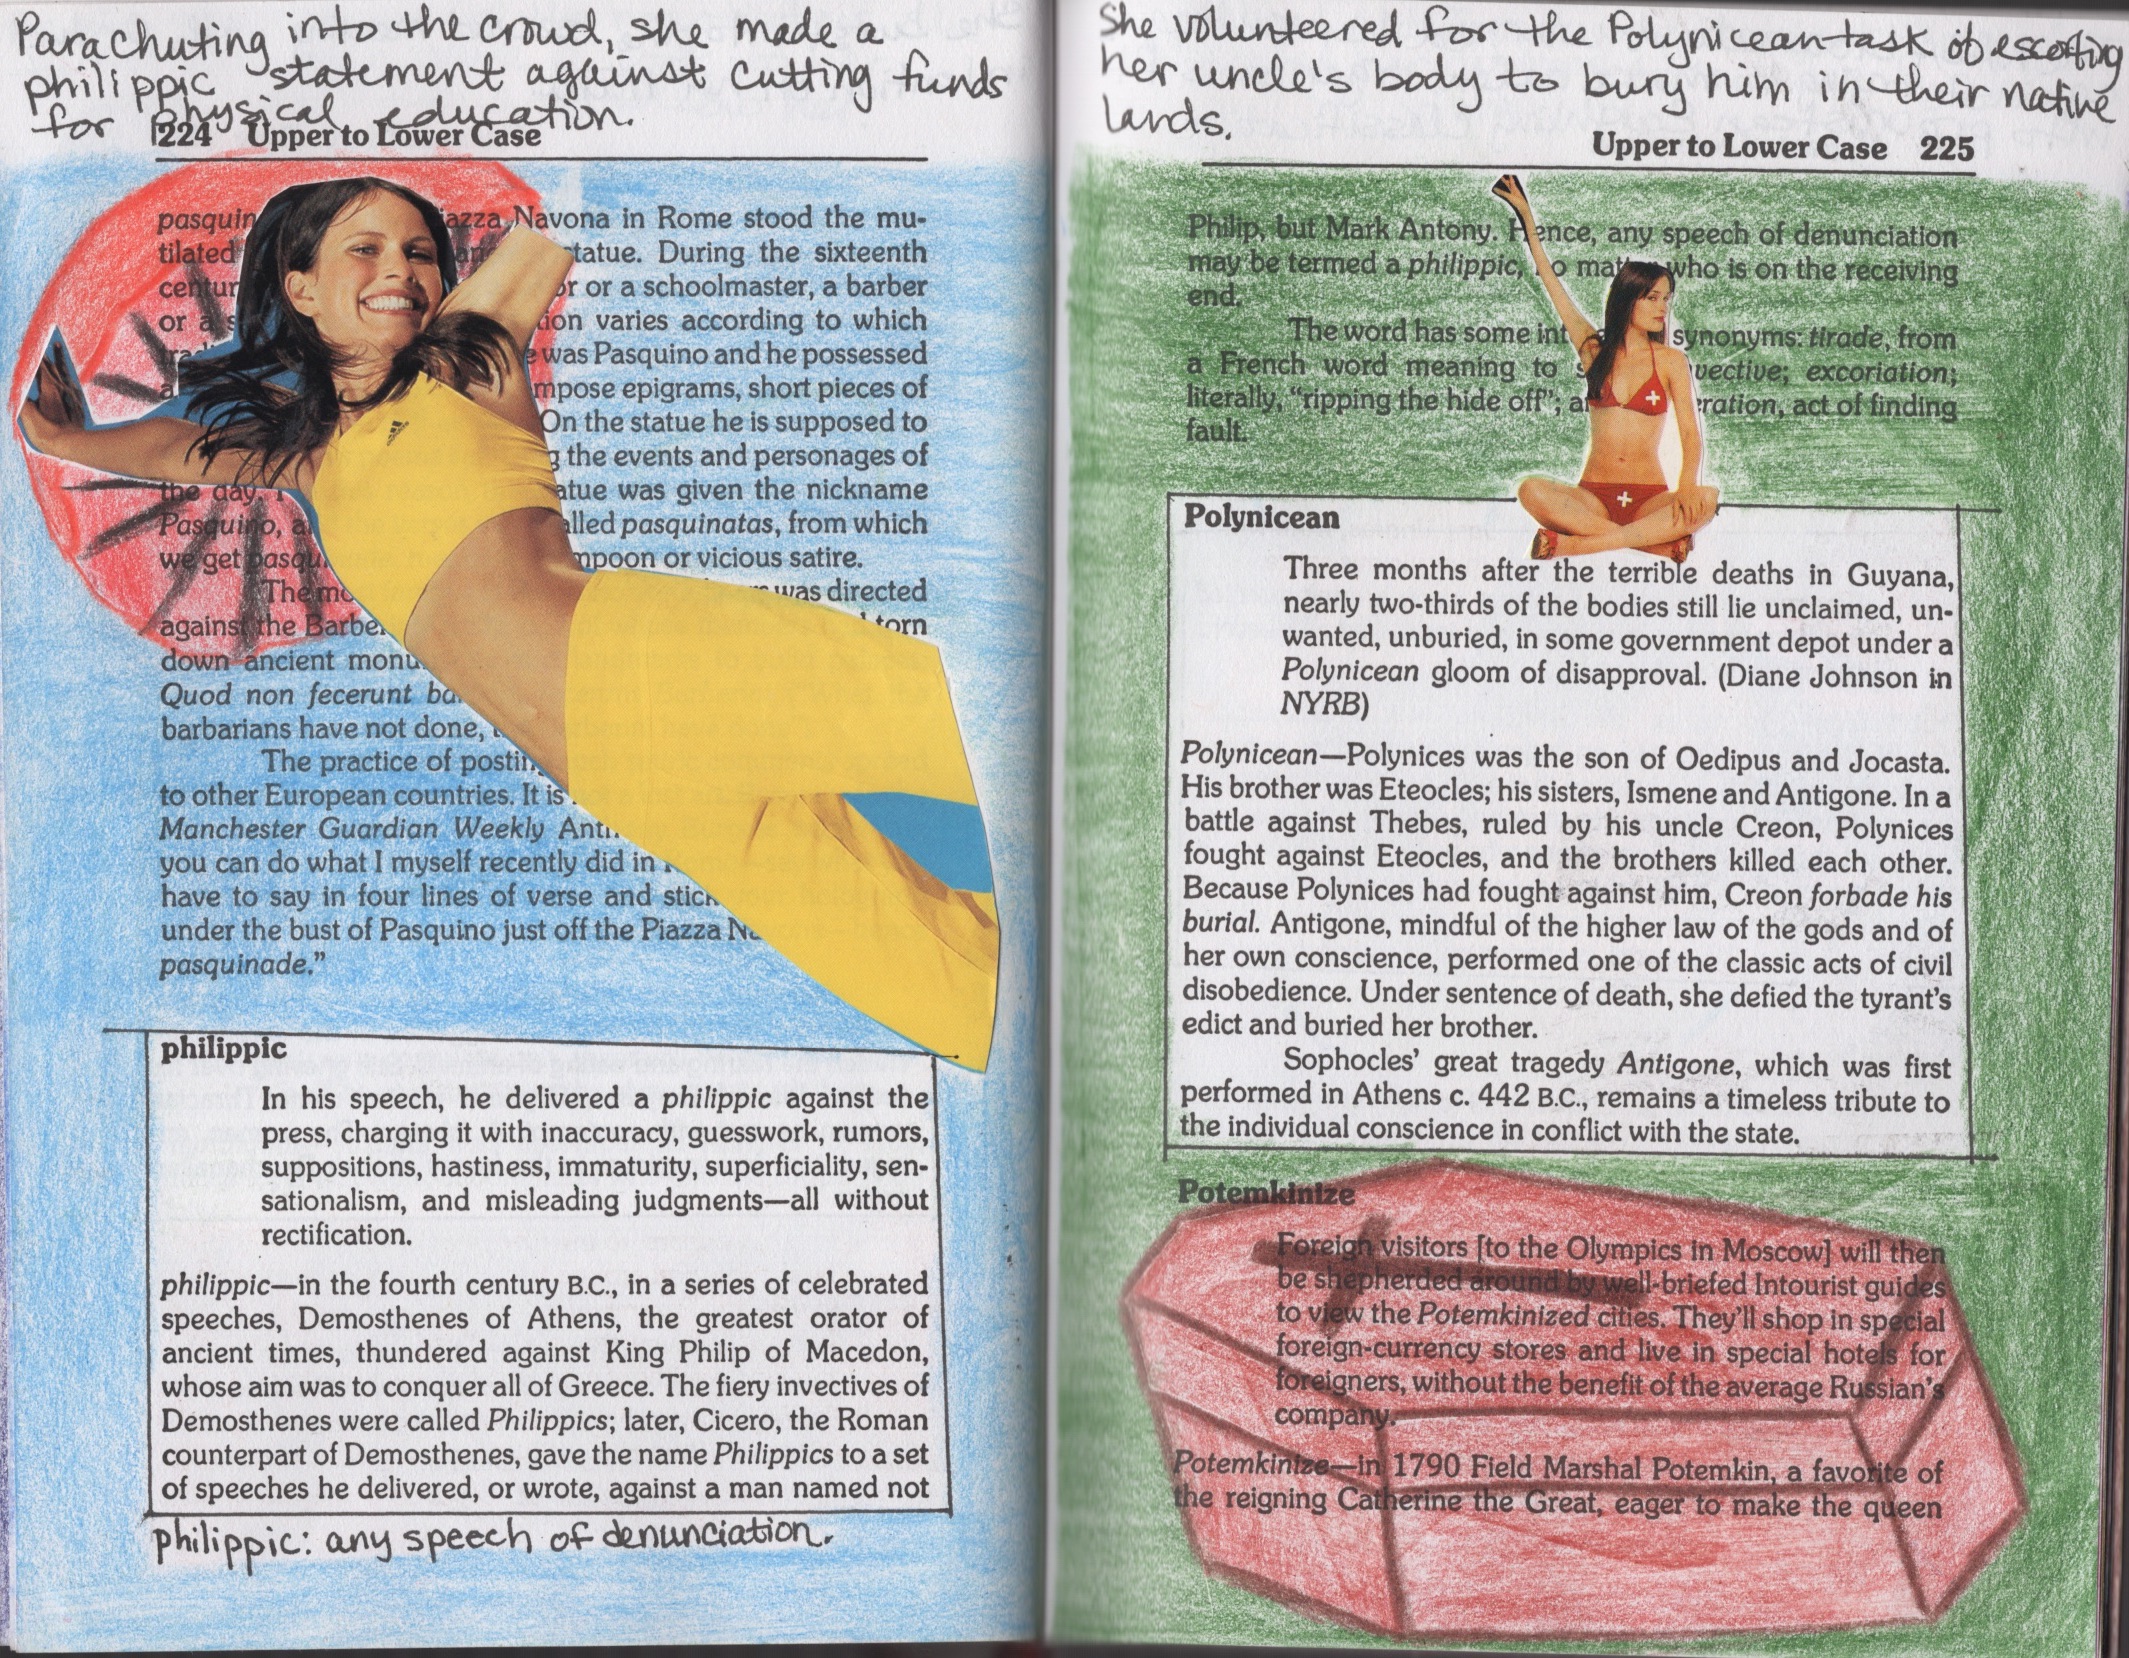 Parachuting into the crowd, she made a
philippic statement against cutting funds
for physical education.
224 Upper to Lower Case
pasquin azza Navona in Rome stood the mu-
tilated statue. During the sixteenth
centur or or a schoolmaster, a barber
or a s ion varies according to which
trad e was Pasquino and he possessed
a mpose epigrams, short pieces of
On the statue he is supposed to
g the events and personages of
the day. atue was given the nickname
Pasquino, a alled pasquinatas, from which
we get pasqu mpoon or vicious satire.
The mo was directed
against the Barber torn
down ancient monu
Quod non fecerunt ba
barbarians have not done,
The practice of postin
to other European countries. It is
Manchester Guardian Weekly Anth
you can do what I myself recently did in
have to say in four lines of verse and stick
under the bust of Pasquino just off the Piazza Na
pasquinade.”
philippic
In his speech, he delivered a philippic against the
press, charging it with inaccuracy, guesswork, rumors,
suppositions, hastiness, immaturity, superficiality, sen-
sationalism, and misleading judgments—all without
rectification.
philippic—in the fourth century B.C., in a series of celebrated
speeches, Demosthenes of Athens, the greatest orator of
ancient times, thundered against King Philip of Macedon,
whose aim was to conquer all of Greece. The fiery invectives of
Demosthenes were called Philippics; later, Cicero, the Roman
counterpart of Demosthenes, gave the name Philippics to a set
of speeches he delivered, or wrote, against a man named not
philippic: any speech of denunciation.
She volunteered for the Polynicean task of escorting
her uncle's body to bury him in their native
lands.
Upper to Lower Case 225
Philip, but Mark Antony. Hence, any speech of denunciation
may be termed a philippic, no matter who is on the receiving
end.
The word has some int synonyms: tirade, from
a French word meaning to s vective; excoriation;
literally, “ripping the hide off”; a ration, act of finding
fault.
Polynicean
Three months after the terrible deaths in Guyana,
nearly two-thirds of the bodies still lie unclaimed, un-
wanted, unburied, in some government depot under a
Polynicean gloom of disapproval. (Diane Johnson in
NYRB)
Polynicean—Polynices was the son of Oedipus and Jocasta.
His brother was Eteocles; his sisters, Ismene and Antigone. In a
battle against Thebes, ruled by his uncle Creon, Polynices
fought against Eteocles, and the brothers killed each other.
Because Polynices had fought against him, Creon forbade his
burial. Antigone, mindful of the higher law of the gods and of
her own conscience, performed one of the classic acts of civil
disobedience. Under sentence of death, she defied the tyrant’s
edict and buried her brother.
Sophocles’ great tragedy Antigone, which was first
performed in Athens c. 442 B.C., remains a timeless tribute to
the individual conscience in conflict with the state.
Potemkinize
Foreign visitors [to the Olympics in Moscow] will then
be shepherded around by well-briefed Intourist guides
to view the Potemkinized cities. They’ll shop in special
foreign-currency stores and live in special hotels for
foreigners, without the benefit of the average Russian’s
company.
Potemkinize—in 1790 Field Marshal Potemkin, a favorite of
the reigning Catherine the Great, eager to make the queen